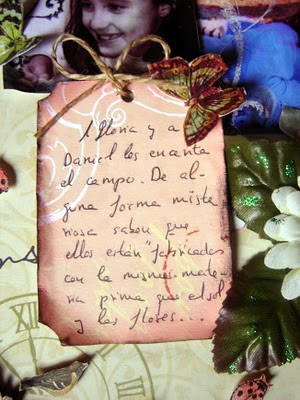 A Gloria y a
Daniel les encanta
el campo. De al-
guna forma miste
riosa saben que
ellos están "fabricados
con la misma mate-
ria prima que el sol
y las flores...
XII